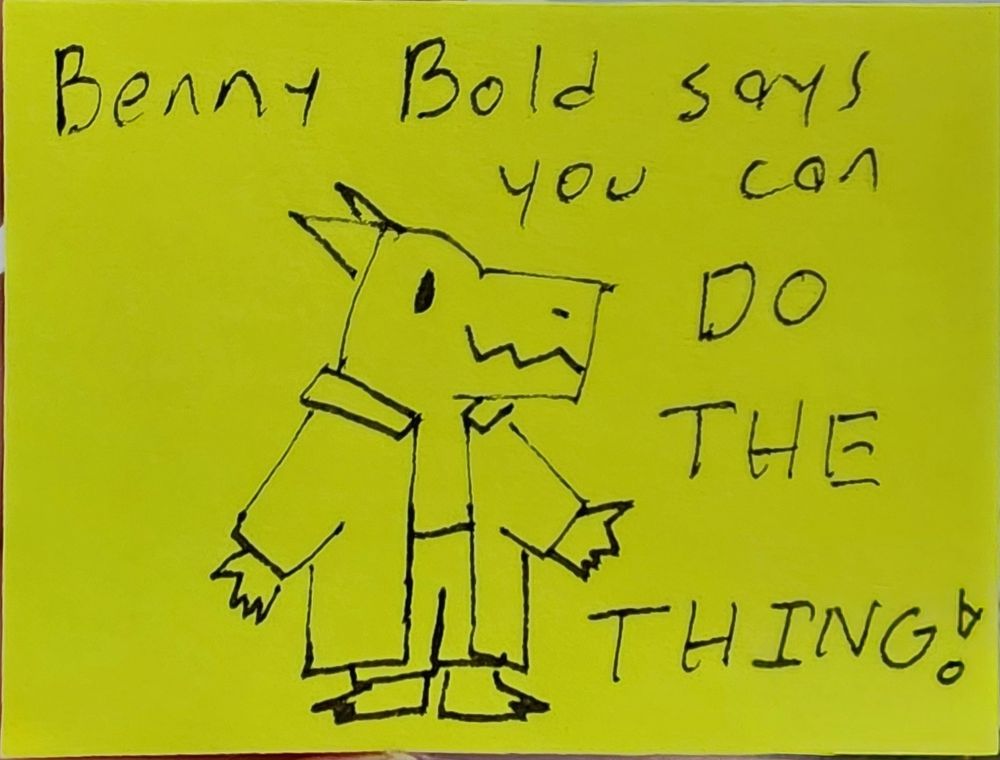 Benny Bold says
you can
DO
THE
THING!